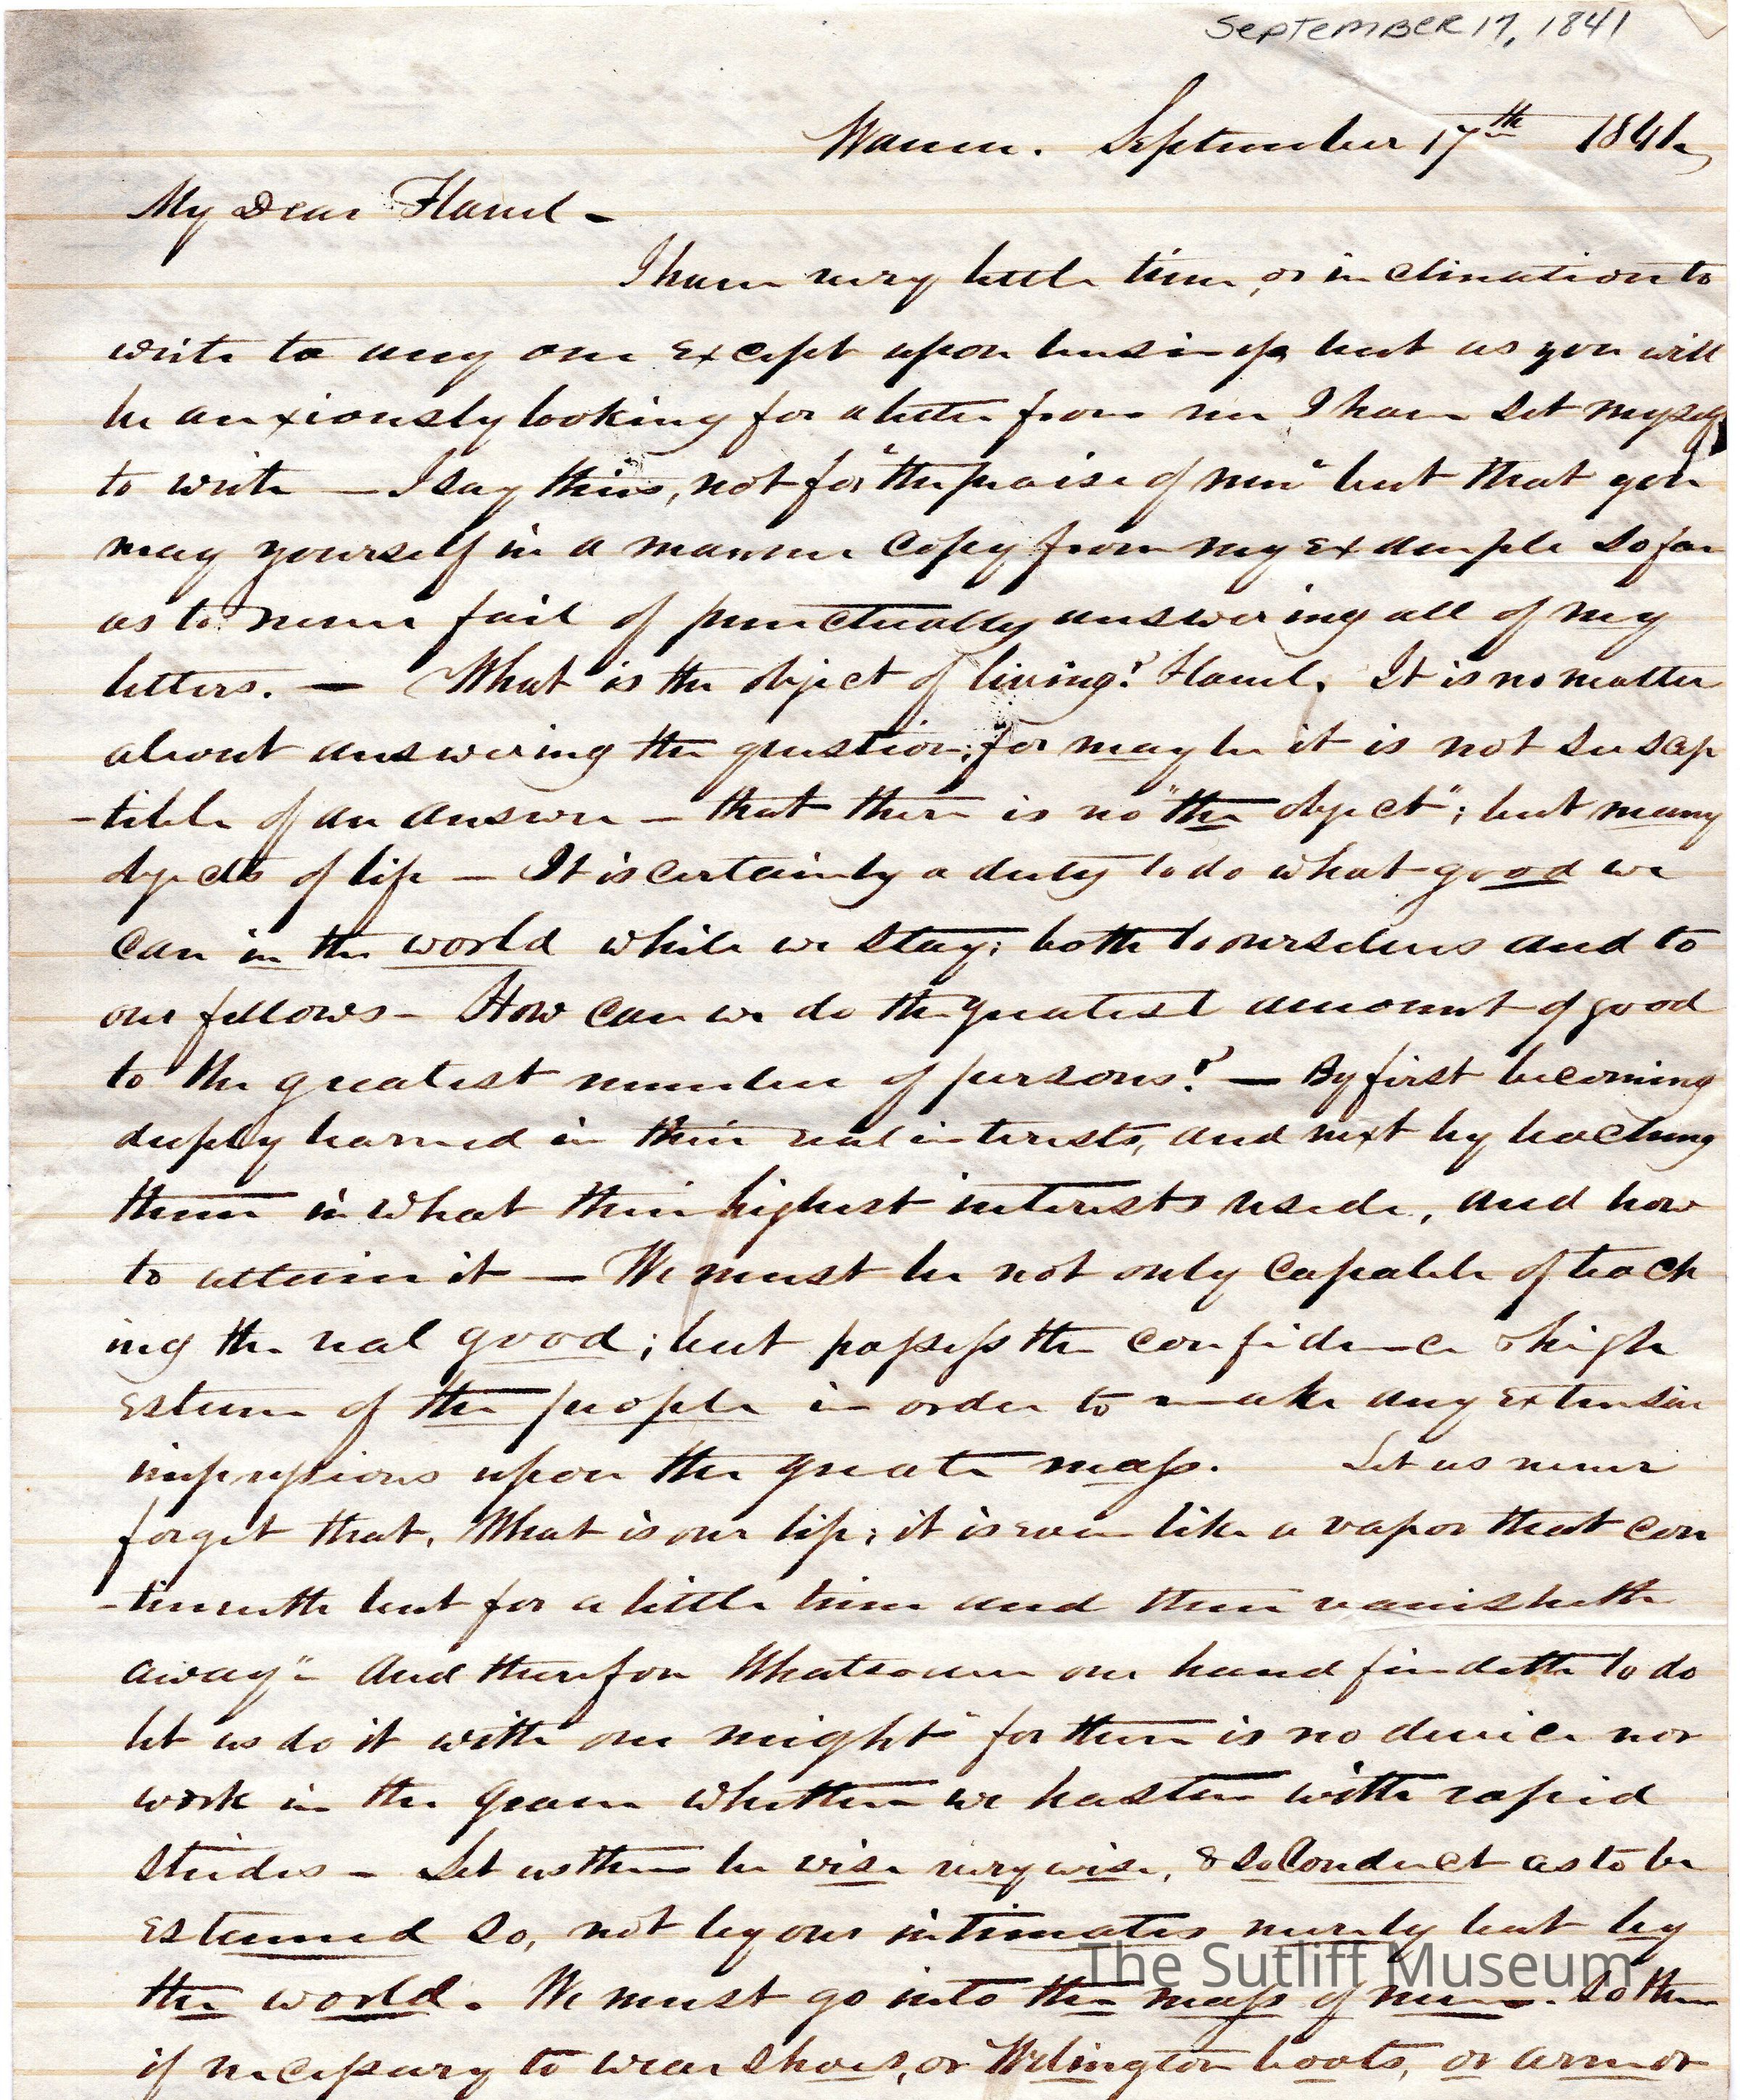 SEPTEMBER 17, 1841
Warren. September 17th 1841,
My Dear Flavel -
I have very little time, or inclination to
write to any one except upon business, but as you will
be anxiously looking for a letter from me I have set myself
to write — I say this, not for "the praise of men" but that you
may yourself in a manner copy from my example so far
as to never fail of punctually answering all of my
letters. — What is the object of living? Flavel. It is no matter
about answering the question; for may be it is not suscep
-tible of an answer — that there is no "the object"; but many
objects of life — It is certainly a duty to do what good we
can in the world while we stay; both to ourselves and to
our fellows - How can we do the greatest amount of good
to the greatest number of persons? — By first becoming
deeply learned in their real interests, and next by teaching
them in what their highest interests reside, and how
to attain it — We must be not only capable of teach
ing the real good; but possess the confidence & high
esteem of the people in order to make any extensive
impressions upon the great mass. Let us never
forget that, What is our life; it is even like a vapor that con
-tinueth but for a little time and then vanisheth
away" - And therefore Whatsoever our hand findeth to do
let us do it with our might" for there is no device nor
work in the grave whither we hasten with rapid
strides - Let us then be wise very wise, & so conduct as to be
esteemed so, not by our intimates merely but by
the world. We must go into the mass of men. So then
if necessary to wear shoes, or Wellington boots, or armor
The Sutliff Museum